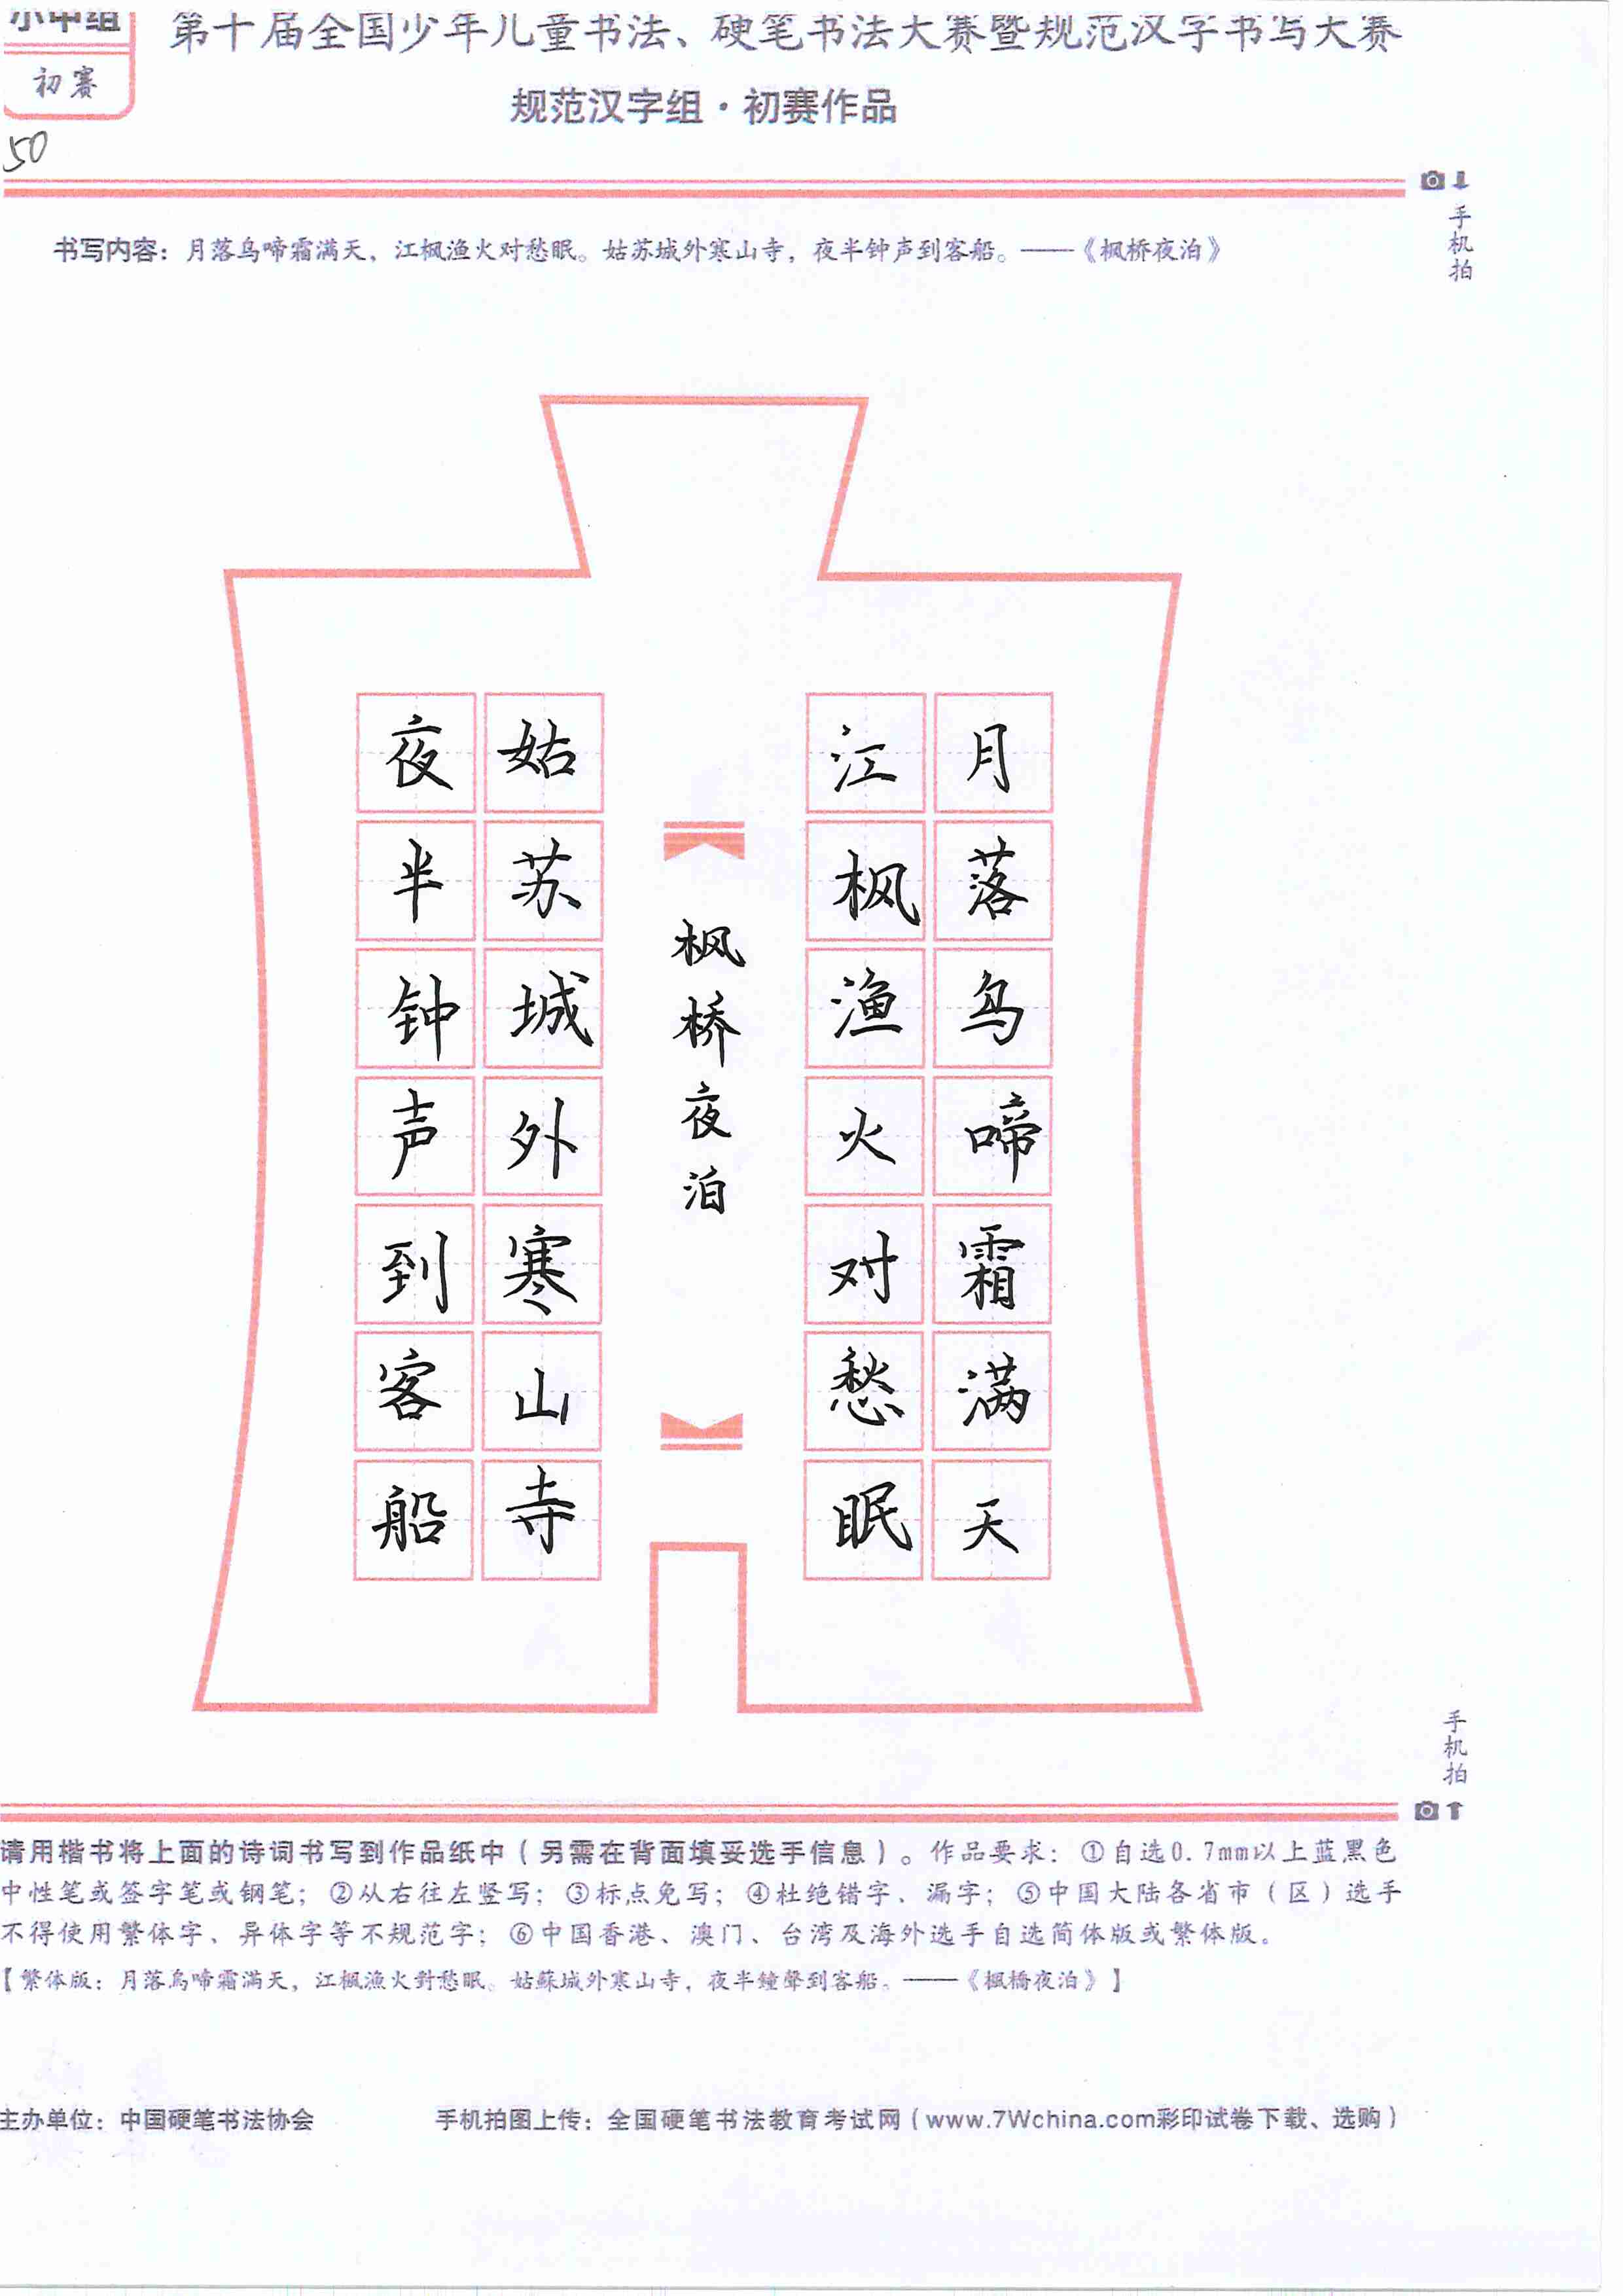 小中组
初赛
50
第十届全国少年儿童书法、硬笔书法大赛暨规范汉字书写大赛
规范汉字组·初赛作品
手机拍
书写内容：月落乌啼霜满天，江枫渔火对愁眠。姑苏城外寒山寺，夜半钟声到客船。——《枫桥夜泊》
月落乌啼霜满天
江枫渔火对愁眠
枫桥夜泊
姑苏城外寒山寺
夜半钟声到客船
手机拍
请用楷书将上面的诗词书写到作品纸中（另需在背面填妥选手信息）。作品要求：①自选0.7mm以上蓝黑色
中性笔或签字笔或钢笔；②从右往左竖写；③标点免写；④杜绝错字、漏字；⑤中国大陆各省市（区）选手
不得使用繁体字、异体字等不规范字；⑥中国香港、澳门、台湾及海外选手自选简体版或繁体版。
【繁体版：月落烏啼霜满天，江楓漁火對愁眠。姑蘇城外寒山寺，夜半鐘聲到客船。——《楓橋夜泊》】
主办单位：中国硬笔书法协会
手机拍图上传：全国硬笔书法教育考试网（www.7Wchina.com彩印试卷下载、选购）